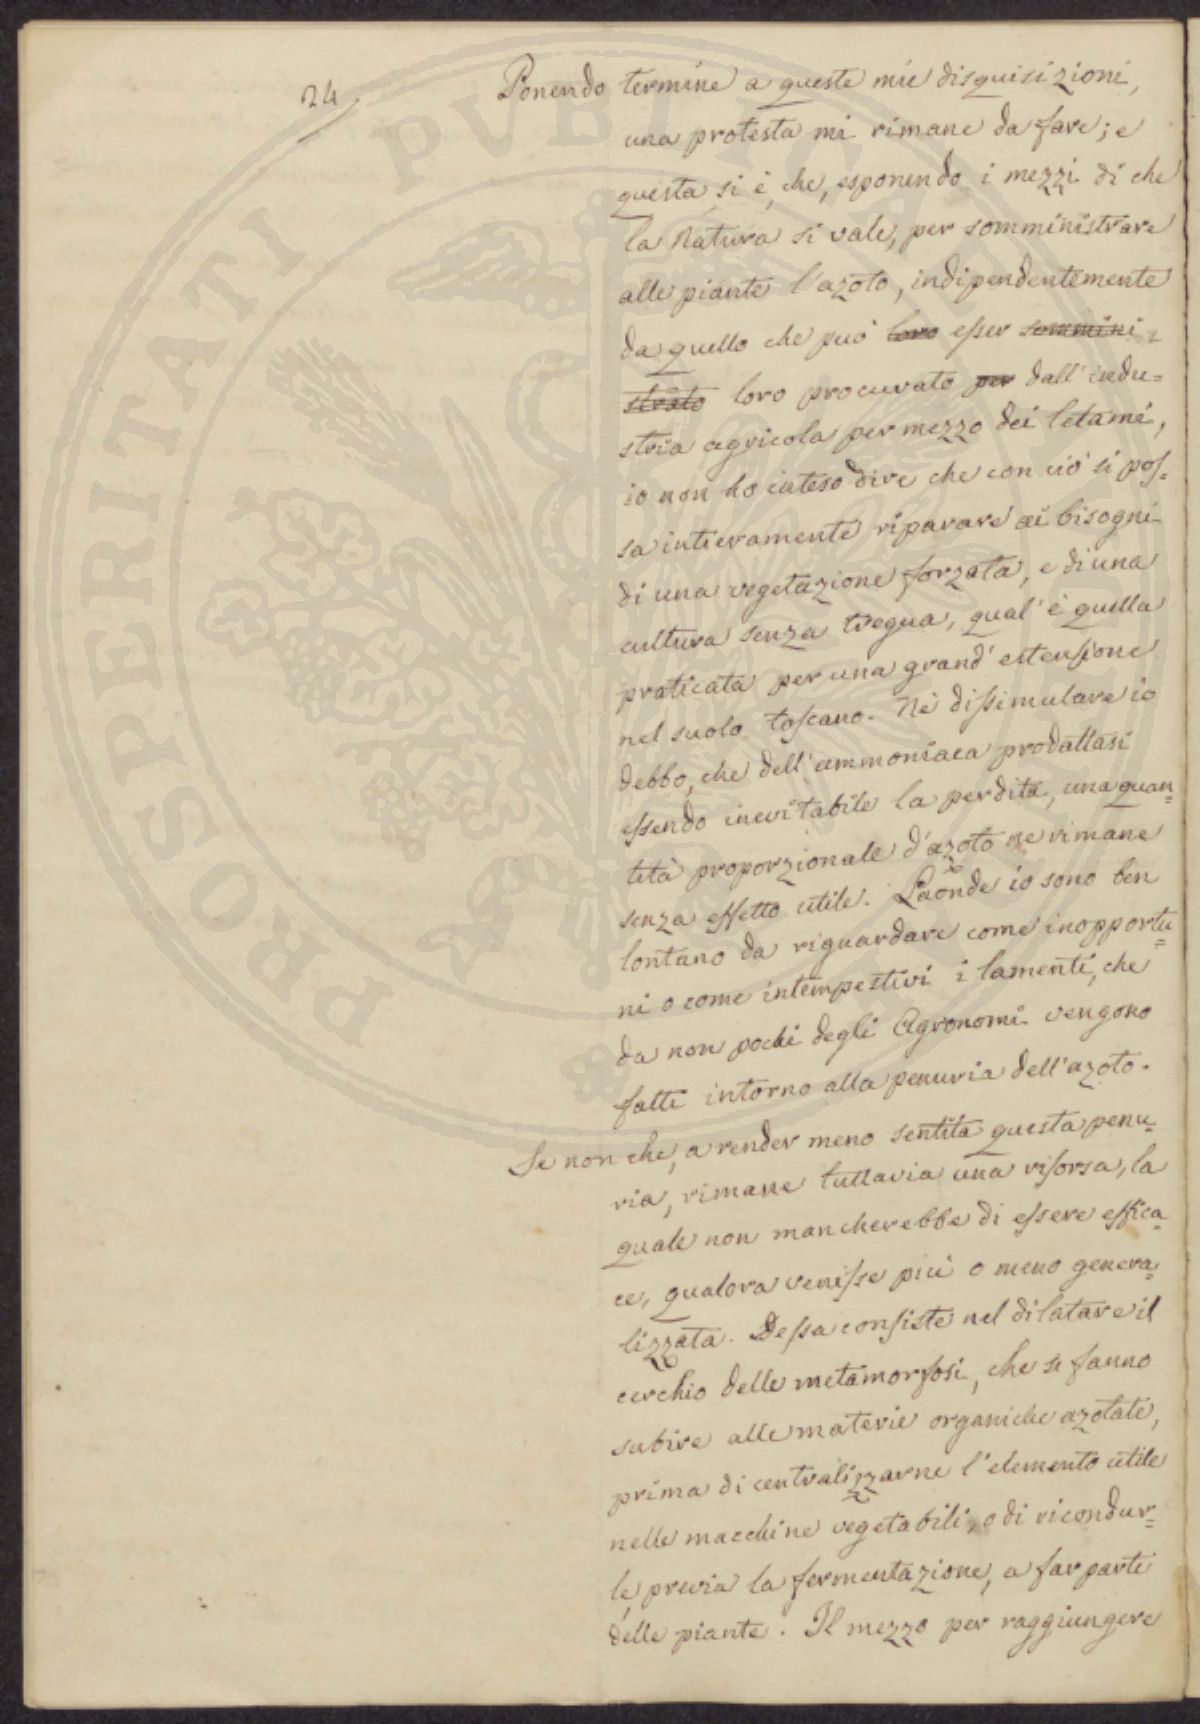 24
Ponendo termine a queste mie disquisizioni,
una protesta mi rimane da fare; e
questa si è, che, esponendo i mezzi di che
la Natura si vale, per somministrare
alle piante l'azoto, indipendentemente
da quello che può loro esser sommini
strato loro procurato per dall'indu=
stria agricola per mezzo dei letami,
io non ho inteso dire che con ciò si pos=
sa intieramente riparare ai bisogni
di una vegetazione forzata, e di una
cultura senza tregua, qual'è quella
praticata per una grand'estensione
nel suolo toscano. Nè dissimulare io
debbo, che dell'ammoniaca prodottasi
essendo inevitabile la perdita, una quan=
tità proporzionale d'azoto ne rimane
senza effetto utile. Laonde io sono ben
lontano da riguardare come inopportu=
ni o come intempestivi i lamenti, che
da non pochi degli Agronomi vengono
fatti intorno alla penuria dell'azoto.
Se non che, a render meno sentita questa penu=
ria, rimane tuttavia una risorsa, la
quale non mancherebbe di essere effica=
ce, qualora venisse più o meno genera=
lizzata. Dessa consiste nel dilatare il
cerchio delle metamorfosi, che si fanno
subire alle materie organiche azotate,
prima di centralizzarne l'elemento utile
nelle macchine vegetabili, o di ricondur=
le, previa la fermentazione, a far parte
delle piante. Il mezzo per raggiungere
PROSPERITATI PVBLICAE